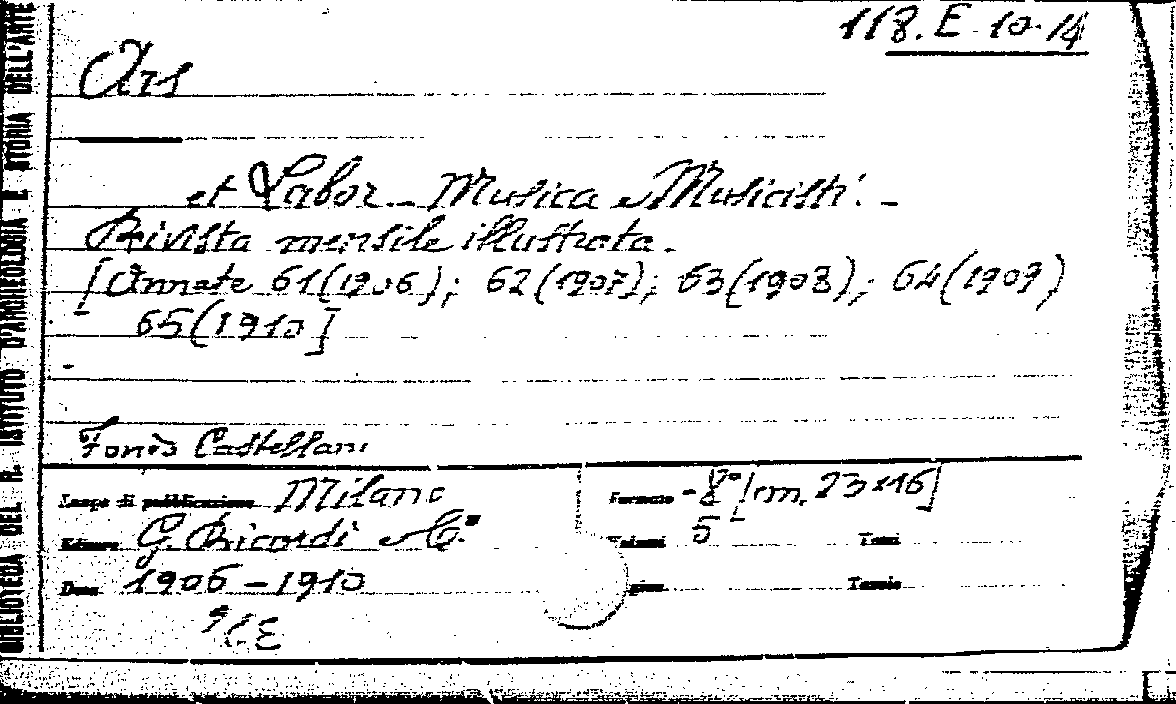 118. E. 10-14
Ars
et Labor - Musica e Musicisti. -
Rivista mensile illustrata.
[Annate 61(1906); 62(1907); 63(1908); 64(1909)
65(1910]
Fondo Castellani
Luogo di pubblicazione Milano
Formato - 8° [cm. 23×16]
Editore G. Ricordi e C.°
Volumi 5 Tomi
Data 1906-1910
Pagine Tavole
BIBLIOTECA DEL R. ISTITUTO D'ARCHEOLOGIA E STORIA DELL'ARTE